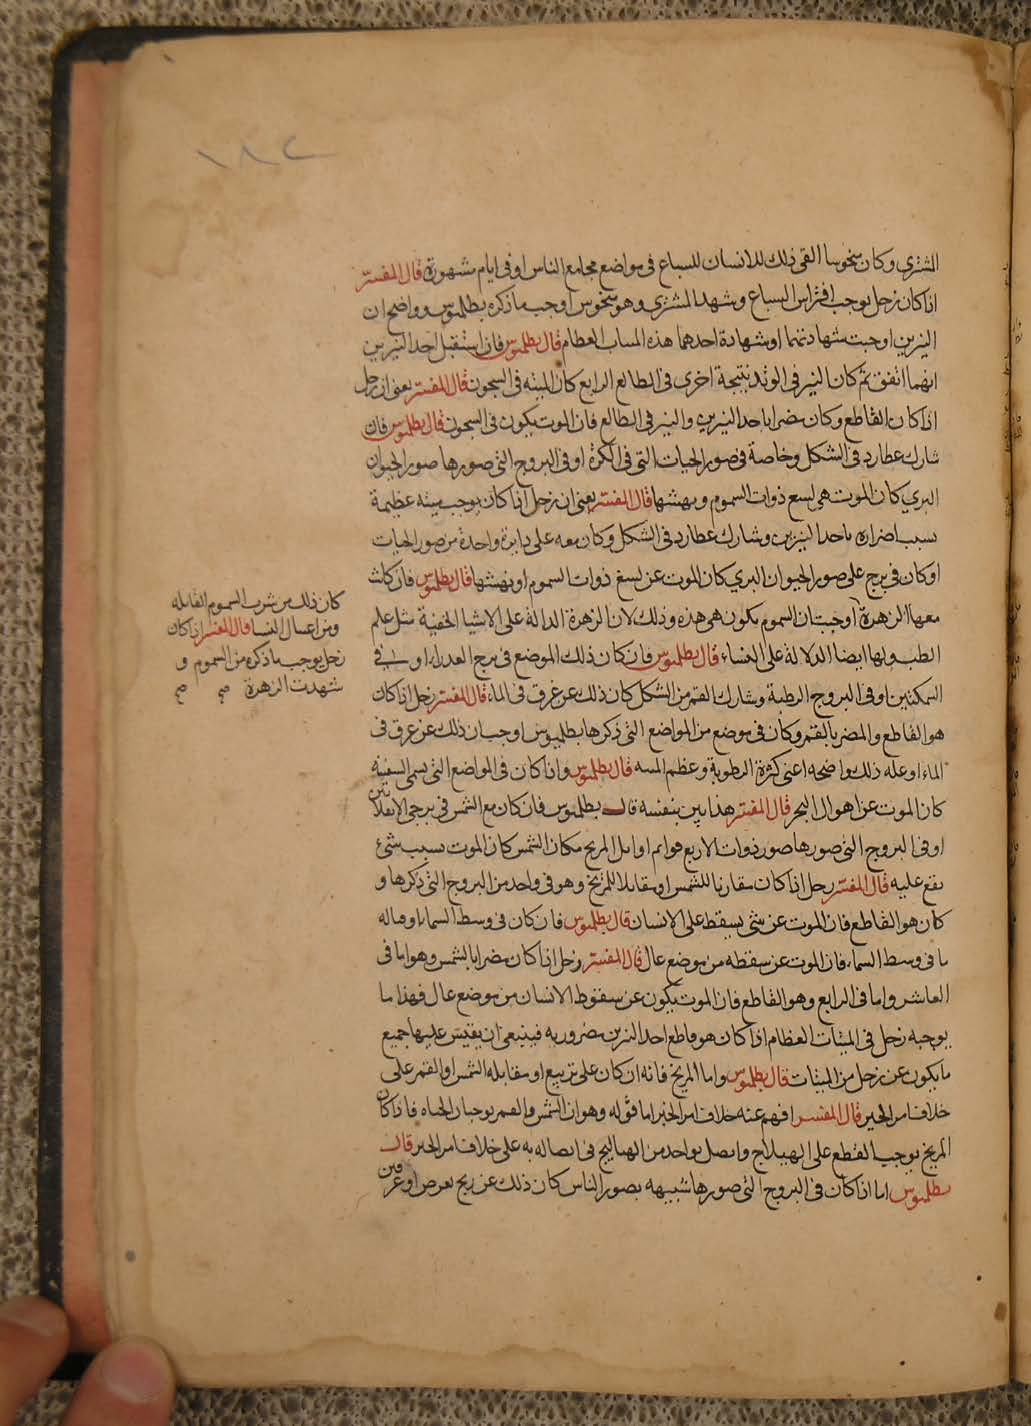 ١٨٢
المشتري وكان منحوسا القى ذلك الانسان للسباع في مواضع مجامع الناس او في ايام مشهورة قال المفسر
اذا كان زحل يوجب افتراس السباع وشهد المشتري وهو منحوس اوجب ما ذكره بطلميوس وواضح ان
النيرين اوجبت شهادتهما او شهادة احدهما هذه الميتات العظام قال بطلميوس فان استقبل احد النيرين
ايهما اتفق ثم كان النير في الوتد نتيجة اخرى في الطالع الرابع كان الميته في السجون قال المفسر يعني ان زحل
اذا كان القاطع وكان مضرا باحد النيرين والنير في الطالع فان الموت يكون في السجون قال بطلميوس فان
شارك عطارد في الشكل وخاصة في صور الحيات التي في الكرة او في البروج التي صورها صور الحيوان
البري كان الموت هي لسع ذوات السموم ونهشها قال المفسر يعني ان زحل اذا كان يوجب ميته عظيمة
بسبب اضراره باحد النيرين وشارك عطارد في الشكل وكان معه على دايرة واحدة من صور الحيات
او كان في برج على صور الحيوان البري كان الموت عن لسع ذوات السموم او نهشها قال بطلميوس فان كانت
معها الزهرة اوجبت ان السموم يكون هي هذه وذلك لان الزهرة الدالة على الاشيا الخفية مثل علم
الطب ولها ايضا الدلالة على النساء قال بطلميوس فان كان ذلك الموضع في برج العذراء او في
السمكتين او في البروج الرطبة وشارك القمر من الشكل كان ذلك عن غرق في الماء قال المفسر زحل اذا كان
هو القاطع والمضر بالقمر وكان في موضع من المواضع التي ذكرها بطلميوس اوجب ان ذلك عن غرق في
الماء او عله ذلك واضحه اعني كثرة الرطوبة وعظم الميته قال بطلميوس واذا كان في المواضع التي يسمى السفينه
كان الموت عن اهوال البحر قال المفسر هذا بين بنفسه قال بطلميوس فان كان مع الشمس في برجي الانقلابين
او في البروج التي صورها صور ذوات الاربع قوائم او ابدل المريخ مكان الشمس كان الموت بسبب شيء
يقع عليه قال المفسر زحل اذا كان مقارنا للشمس او مقابلا للمريخ وهو في واحد من البروج التي ذكرها و
كان هو القاطع فان الموت عن شئ يسقط على الانسان قال بطلميوس فان كان في وسط السماء او قباله
ما في وسط السماء فان الموت عن سقطه من موضع عال قال المفسر زحل اذا كان مضرا بالشمس وهو اما في
العاشر واما في الرابع وهو القاطع فان الموت يكون عن سقوط الانسان من موضع عال فهذا ما
يوجبه زحل في الميتات العظام اذا كان هو قاطع احد النيرين مضر وربه فينبغي ان يقيس عليها جميع
ما يكون عن زحل من الميتات قال بطلميوس واما المريخ فانه ان كان على تربيع او مقابله الشمس او القمر على
خلاف امر الحين قال المفسر افهم عنه خلاف امر الخير اما قوله وهو ان الشمس والقمر يوجبان الحياه فاذا كان
المريخ يوجب القطع على الهيلاج واتصل بواحد من الهياليج في اتصاله به على خلاف امر الخير قال
بطلميوس اما اذا كان في البروج التي صورها شبيهه بصور الناس كان ذلك عن ذبح يعرض او عن فتن
كان ذلك من شرب السموم القاتله
ومن اعمال النسا قال المفسر اذا كان
زحل يوجب ما ذكره من السموم و
شهدت الزهرة صح صح